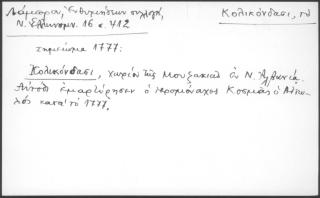 Λάμπρου, Ἐνθυμήσεων συλλογή,
Ν. Ἑλληνομν. 16 σ. 412
Κολικόνδασι, τό
σημείωμα 1777:
Κολικόνδασι, χωρίον τῆς Μουζακιάς ἐν Ν. Ἀλβανίᾳ.
Αὐτόθι ἐμαρτύρησεν ὁ ἱερομόναχος Κοσμᾶς ὁ Αἰτω-
λός κατά τό 1777.